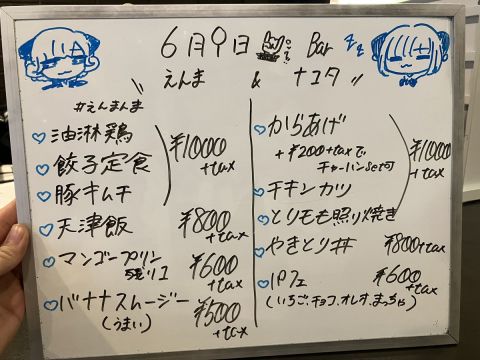 6月9日 Bar
えんま & ナユタ
#えんまんま
油淋鶏
餃子定食
豚キムチ
¥1000
+tax
天津飯 ¥800
+tax
マンゴープリン
残り1
¥600
+tax
バナナスムージー
(うまい)
¥500
+tax
からあげ
+¥200+taxで
チャーハンset可
チキンカツ
とりもも照り焼き
¥1000
+tax
やきとり丼 ¥800+tax
パフェ ¥600
+tax
(いちご、チョコ、オレオ、まっちゃ)